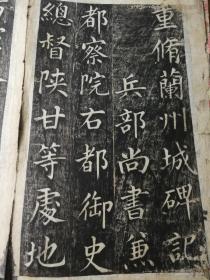 重脩蘭州城碑記
兵部尚書兼
都察院右都御史
總督陝甘等處地